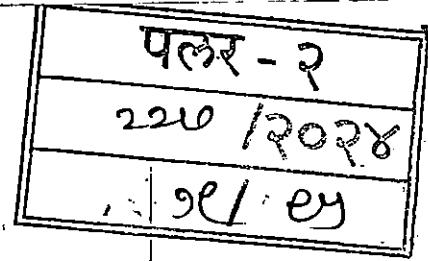 पलर - २
२२७ /२०२४
१९/ ९५